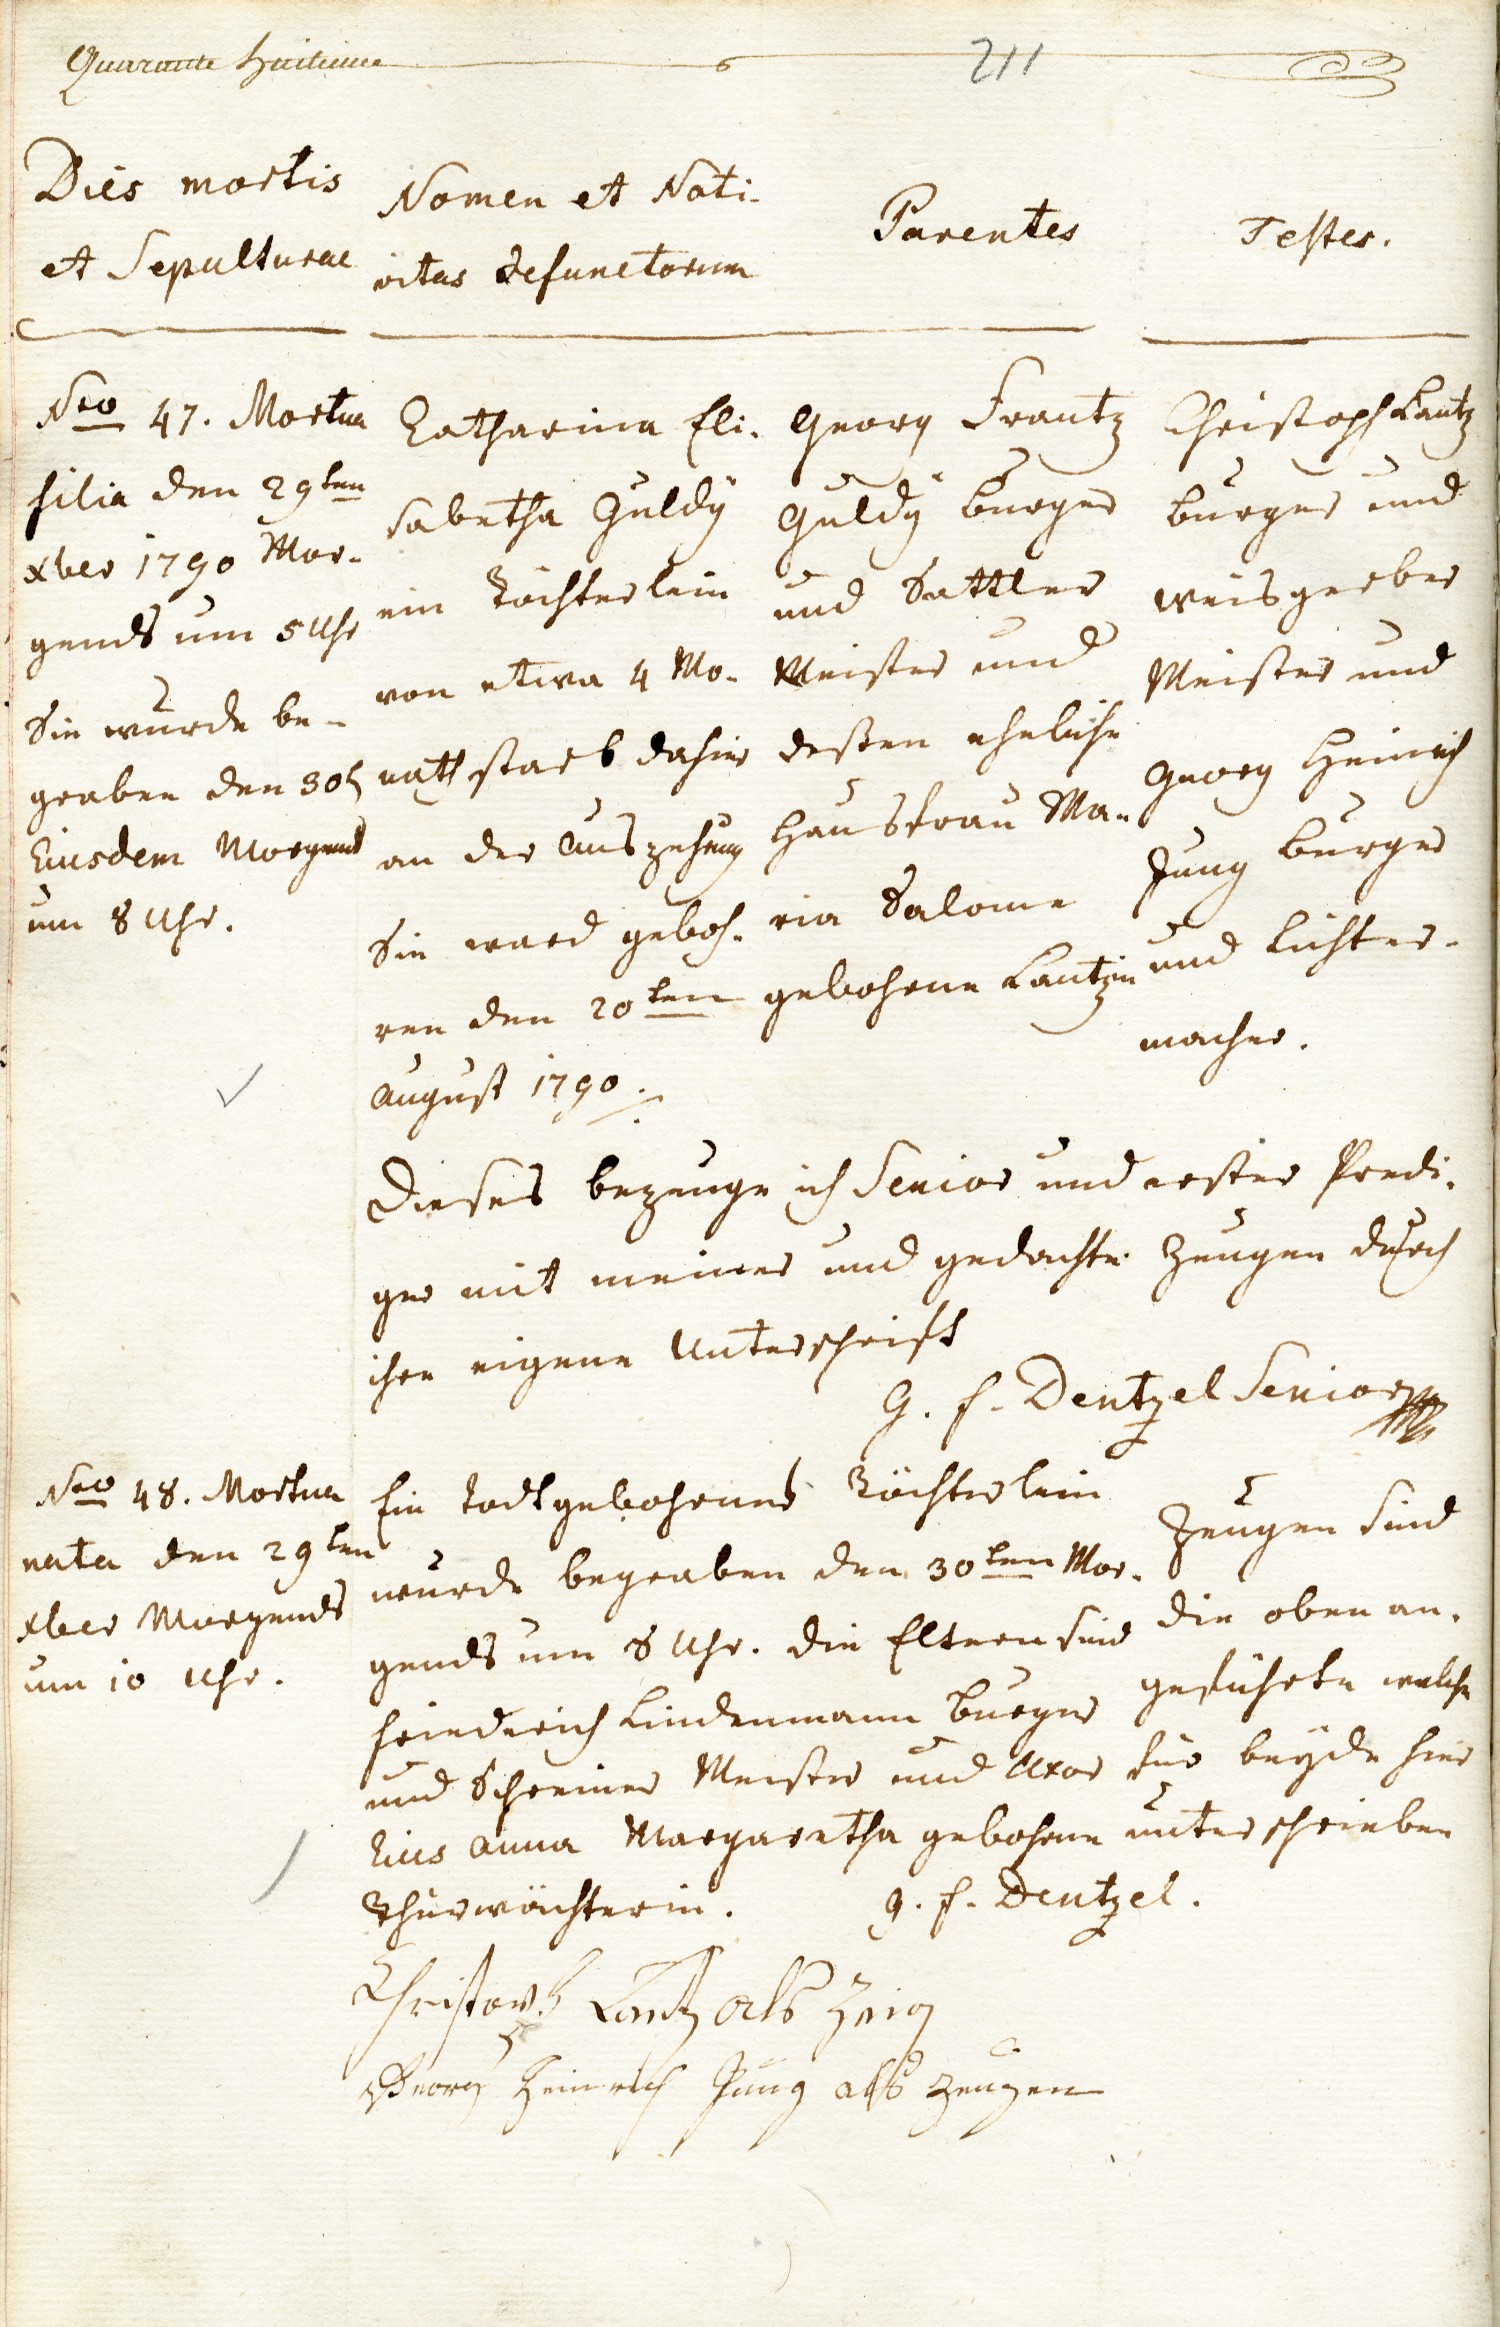 Quarante huitieme
211
Dies mortis
et Sepulturae
Nomen et Nati-
vitas defunctorum
Parentes
Testes.
Nro 47. Mortua
filia den 29ten
xber 1790 Mor-
gends um 5 Uhr
Sie wurde be-
graben den 30t
Eiusdem Morgends
um 8 Uhr.
Catharina Eli-
sabetha Guldÿ
ein Töchterlein
von etwa 4 Mo-
nath starb dahier
an der Auszehrung
Sie ward geboh-
ren den 20ten
August 1790.
Georg Frantz
Guldÿ Burger
und Sattler
Meister und
deßen eheliche
Hausfrau Ma-
ria Salome
gebohrne Lantzin
Christoph Lantz
Burger und
Weisgerber
Meister und
Georg Heinrich
Jung Burger
und Lichter-
macher.
Dieses bezeuge ich Senior und erster Predi-
ger mit meiner und gedachte Zeugen durch
ihre eigene Unterschrift
G. F. Dentzel Senior
Nro 48. Mortua
nata den 29ten
xber Morgends
um 10 Uhr.
Ein todtgebohrnes Töchterlein
wurde begraben den 30ten Mor-
gends um 8 Uhr. die Eltern sind
Friedrich Lindenmann Burger
und Schreiner Meister und Uxor
Eius Anna Margaretha gebohrne
Thürwächterin.
Zeugen sind
die oben an-
geführte welche
für beÿde hier
unterschrieben
G. F. Dentzel.
Christoph Lantz als Zeig
Georg Heinrich Jung als Zeugen